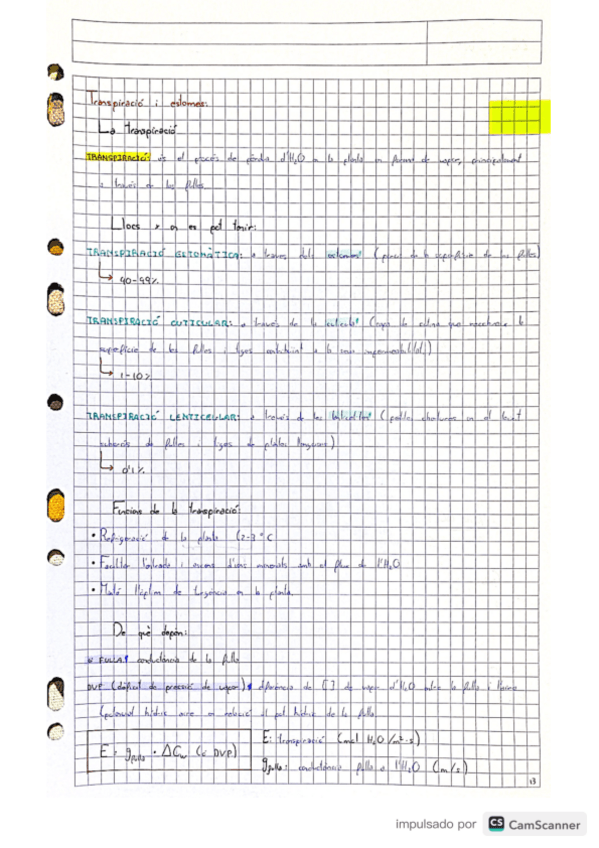 Transpiració i estomes:
La transpiració
TRANSPIRACIÓ: és el procés de pèrdua d'H₂O a la planta en forma de vapor, principalment
a través de les fulles.
Llocs a on es pot tenir:
TRANSPIRACIÓ ESTOMÀTICA: a través dels estomes (porus de la superfície de les fulles)
↳ 90-99%
TRANSPIRACIÓ CUTICULAR: a través de la cutícula (capa de cutina que recobreix la
superfície de les fulles i tiges contribuint a la seva impermeabilitat)
↳ 1-10%
TRANSPIRACIÓ LENTICELAR: a través de les lenticel·les (petites obertures en el teixit
suberós de fulles i tiges de plantes llenyoses)
↳ 0'1%
Funcions de la transpiració:
• Refrigeració de la planta (2-3°C
• Facilitar l'entrada i ascens d'ions minerals amb el flux de l'H₂O
• l'òptim de turgència en la planta.
De què depèn:
FULLA: conductància de la fulla
DVP (dèficit de pressió de vapor): diferència de [ ] de vapor d'H₂O entre la fulla i l'aire
(potencial hídric aire en relació al pot. hídric de la fulla
E = g fulla · ΔCw (o DVP)
E: transpiració (mol H₂O/m²·s)
g fulla: conductància fulla a l'H₂O (m/s)
13
impulsado por CS CamScanner